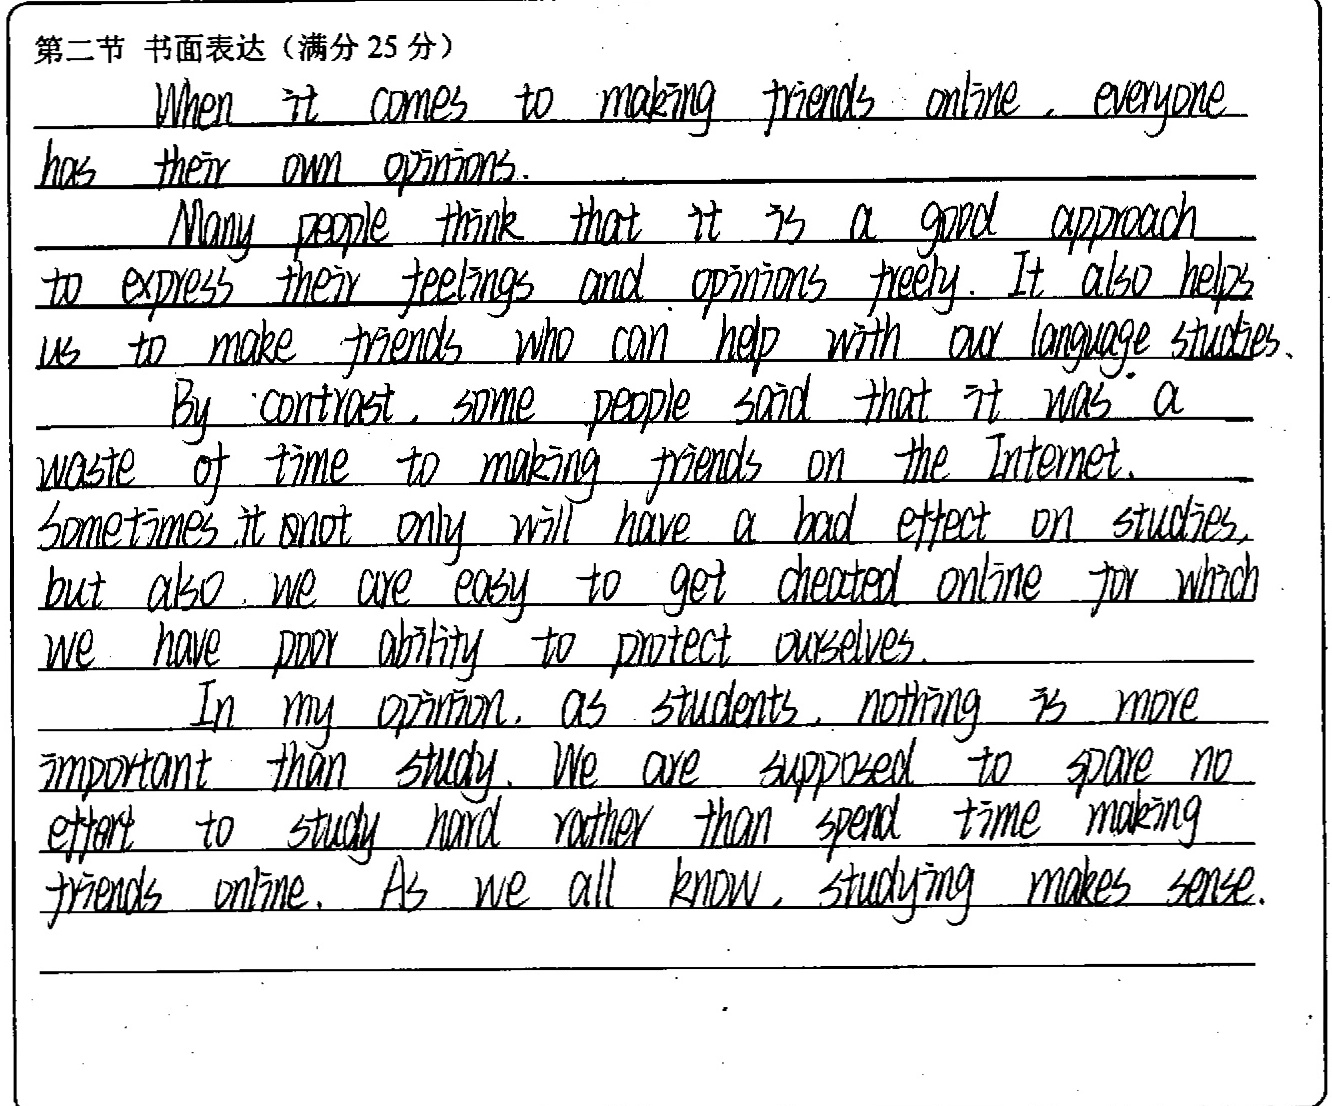 第二节 书面表达（满分 25 分）
When it comes to making friends online, everyone
has their own opinions.
Many people think that it is a good approach
to express their feelings and opinions freely. It also helps
us to make friends who can help with our language studies.
By contrast, some people said that it was a
waste of time to making friends on the Internet.
Sometimes it not only will have a bad effect on studies,
but also we are easy to get cheated online for which
we have poor ability to protect ourselves.
In my opinion, as students, nothing is more
important than study. We are supposed to spare no
effort to study hard rather than spend time making
friends online. As we all know, studying makes sense.